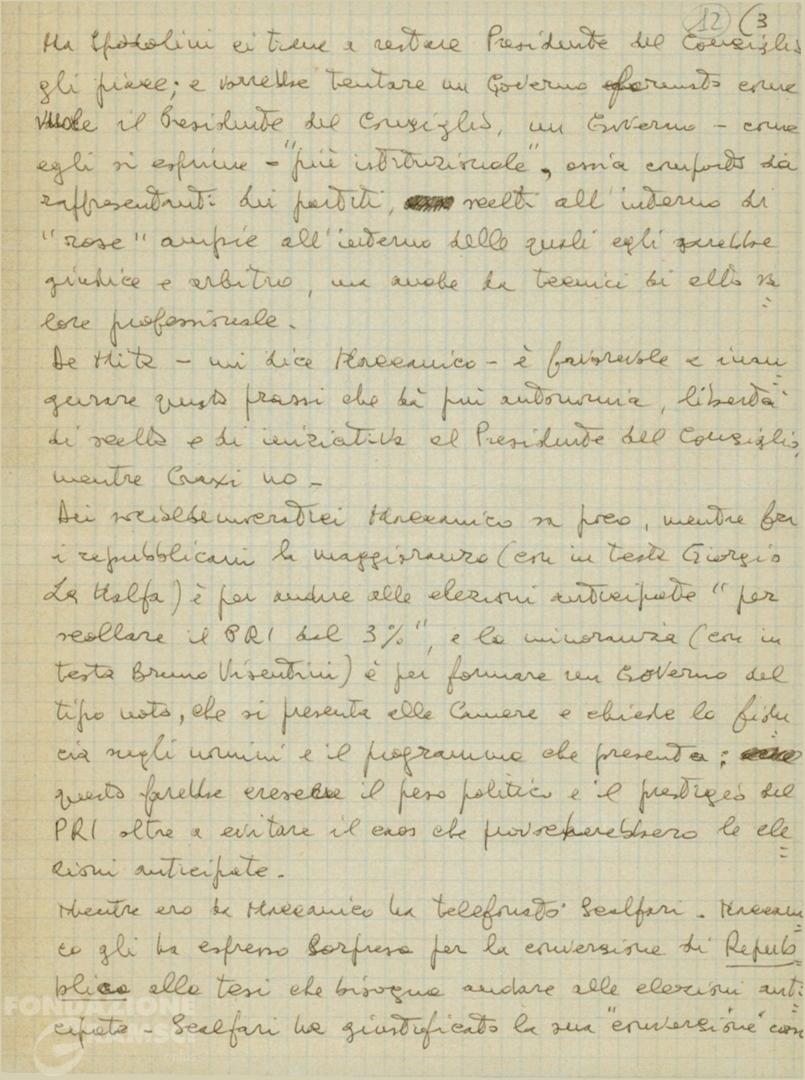 12 (3
Ma Spadolini ci tiene a restare Presidente del Consiglio
gli piace; e vorrebbe tentare un Governo formato come
vuole il Presidente del Consiglio, un Governo – come
egli si esprime – "più istituzionale", ossia composto da
rappresentanti dei partiti, scelti all'interno di
"rose" ampie all'interno delle quali egli sarebbe
giudice e arbitro, ma anche da tecnici di alto va
lore professionale.
De Mita – mi dice Maccanico – è favorevole a inau
gurare questa prassi che dà più autonomia, libertà
di scelta e di iniziativa al Presidente del Consiglio,
mentre Craxi no –
Dei socialdemocratici Maccanico sa poco, mentre fra
i repubblicani la maggioranza (con in testa Giorgio
La Malfa) è per andare alle elezioni anticipate "per
scollare il PRI dal 3%", e la minoranza (con in
testa Bruno Visentini) è per formare un Governo del
tipo noto, che si presenta alle Camere e chiede la fidu
cia sugli uomini e il programma che presenta;
questo farebbe crescere il peso politico e il prestigio del
PRI oltre a evitare il caos che provocherebbero le ele
zioni anticipate.
Mentre ero da Maccanico ha telefonato Scalfari. Maccani
co gli ha espresso sorpresa per la conversione di Repub
blica alla tesi che bisogna andare alle elezioni anti
cipate – Scalfari ha giustificato la sua "conversione" con
FONDAZIONE
GRAMSCI